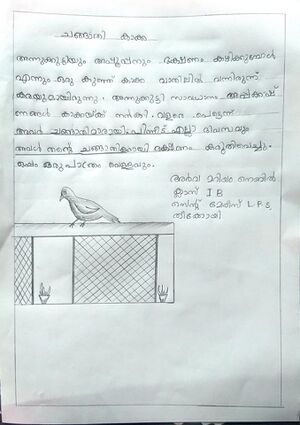 ചങ്ങാതി കാക്ക
അന്നുക്കുട്ടിയും അപ്പൂപ്പനും ഭക്ഷണം കഴിക്കുമ്പോൾ
എന്നും ഒരു കുഞ്ഞ് കാക്ക വാതിലിൽ വന്നിരുന്ന്
കരയുമായിരുന്നു. അന്നുക്കുട്ടി സാവധാനം അപ്പക്കഷ്
ണങ്ങൾ കാക്കയ്ക്ക് നൽകി. വളരെ പെട്ടെന്ന്
അവർ ചങ്ങാതിമാരായി. പിന്നീട് എല്ലാ ദിവസവും
അവൾ തന്റെ ചങ്ങാതിക്കായി ഭക്ഷണം കരുതിവെച്ചു.
ഒപ്പം ഒരു പാത്രം വെള്ളവും.
മറിയം നോബിൽ
ക്ലാസ് I B
സെന്റ് മേരീസ് L.P.S,
തീക്കോയി